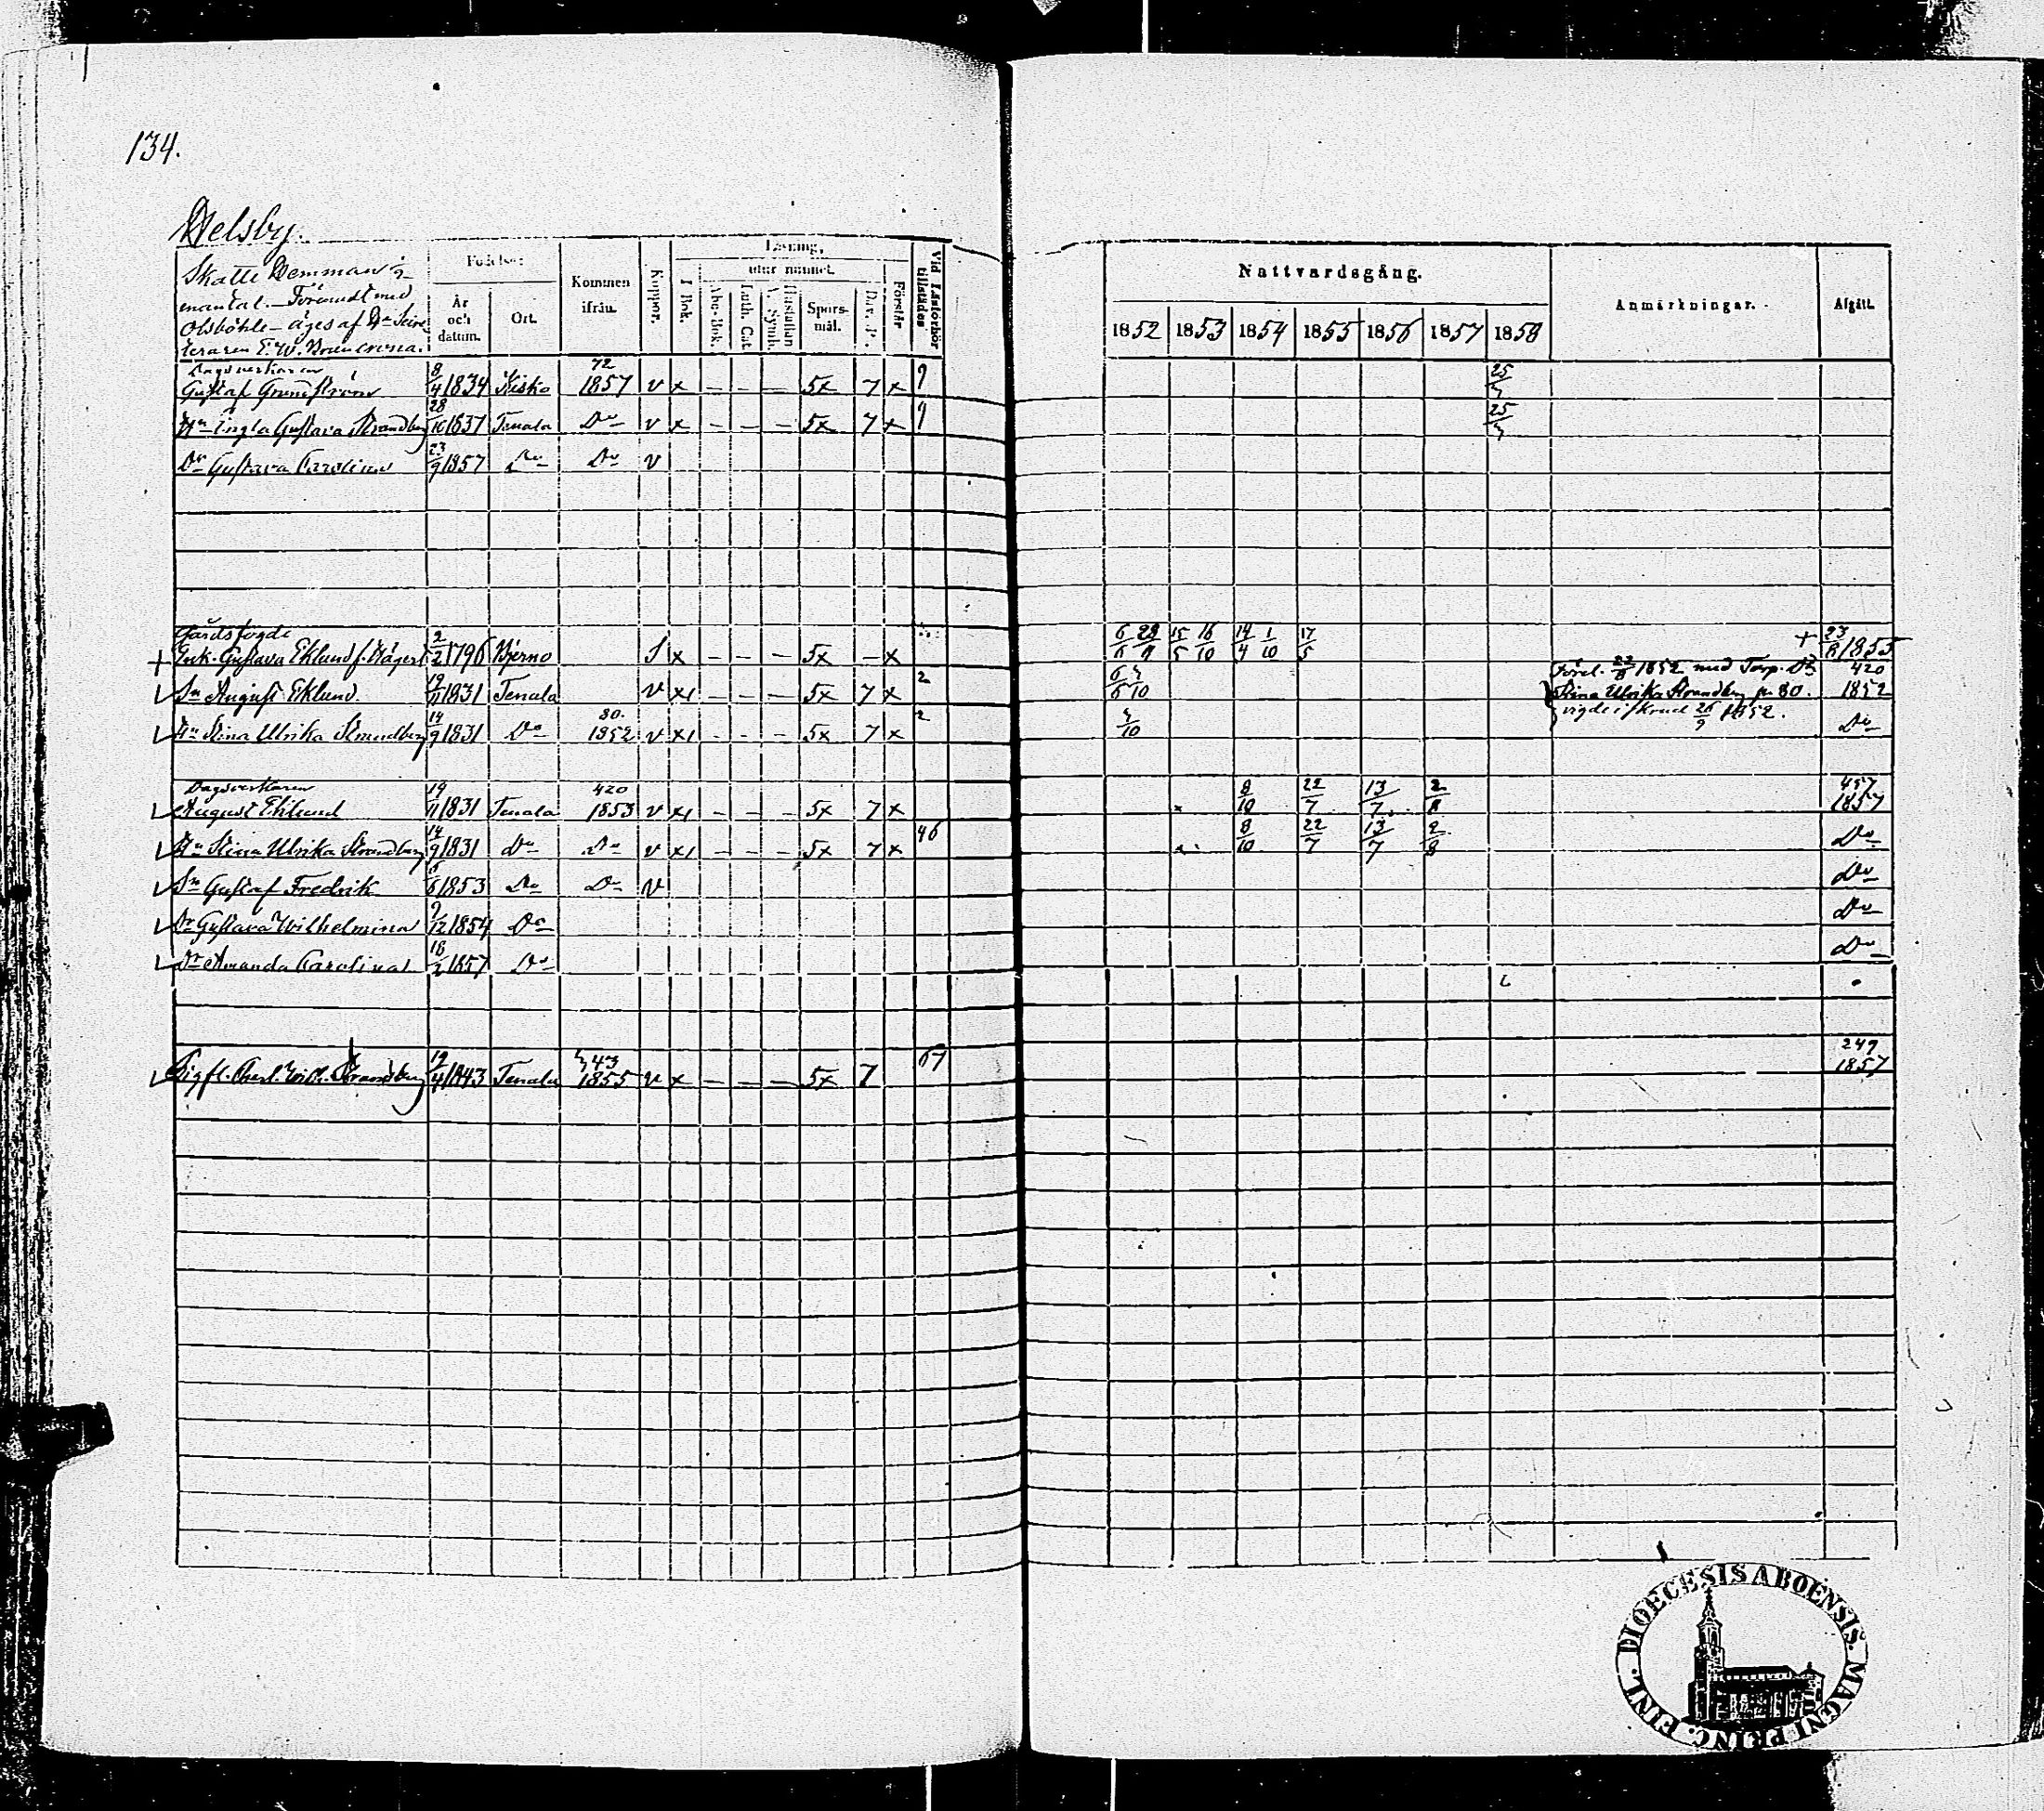 134.
Skatte Hemman
mantal. — Förenadt med
Olsböhle — äges af
Födelse:
År och datum.
Ort.
Kommen ifrån.
Koppor.
Läsning,
utur minnet.
I Bok.
Abc-Bok.
Luth. Cat.
Hustaflan
Spörs-mål.
Förstår
Vid Läsförhör tillstädes
Nattvardsgång.
1852 1853 1854 1855 1856 1857 1858
Anmärkningar.
Afgått.
Dagsverkaren
Gustaf Grundström 8/4 1834 Kisko 72 1857 v x – – – 5x 7 x 9 25/4
Hu Ingla Gustava Strandberg 28/10 1837 Tenala Do v x – – – 5x 7 x 9 25/4
Dr Gustava Carolina 23/9 1857 Do Do v
Gårdsfogde
+ Enk. Gustava Eklund f. Hägert 2/2 1796 Bjerno S x – – – 5x – x 6/6 15/5 16/10 14/4 1/10 17/5 + 23/8 1855
Sn August Eklund 1831 Tenala v x1 – – – 5x 7 x 2 Förel. 1852 med Torp. Dr 420
Stina Ulrika Strandberg p. 80. 1852
Hu Stina Ulrika Strandberg 14/9 1831 Do 80. 1852 v x1 – – – 5x 7 x 2 4/10 vigde 26/9 1852. Do
Dagsverkaren
August Eklund 1831 Tenala 420 1853 v x1 – – – 5x 7 x x 8/10 22/7 13/7 2/8 457 1857
Hu Stina Ulrika Strandberg 14/9 1831 Do Do v x1 – – – 5x 7 x 46 x 8/10 22/7 13/7 2/8 Do
Sn Gustaf Fredrik 6/6 1853 Do Do v Do
Dr Gustava Wilhelmina 9/12 1854 Do Do
Dr Amanda Carolina 18/2 1857 Do Do
Strandberg 19/4 1843 Tenala 1855 v x – – – 5x 7 67 249 1857
DIOECESIS ABOENSIS. MAGNI PRINC. FINL.